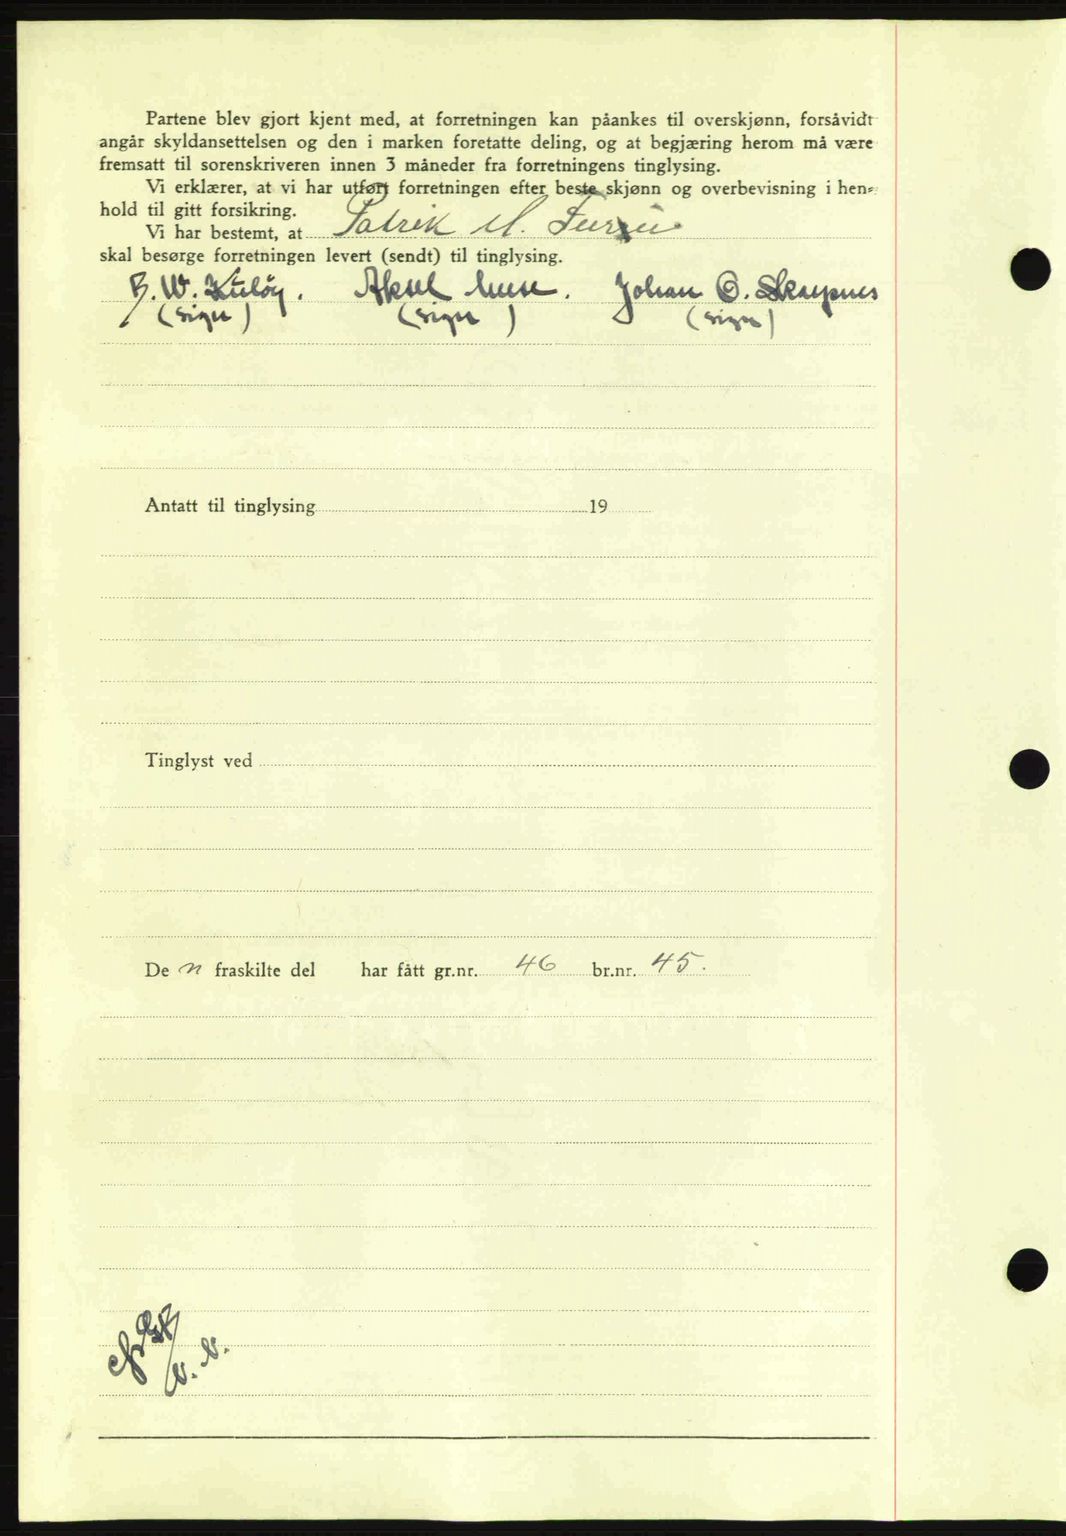 Partene blev gjort kjent med, at forretningen kan påankes til overskjønn, forsåvidt
angår skyldansettelsen og den i marken foretatte deling, og at begjæring herom må være
fremsatt til sorenskriveren innen 3 måneder fra forretningens tinglysing.
Vi erklærer, at vi har utført forretningen efter beste skjønn og overbevisning i hen-
hold til gitt forsikring.
Vi har bestemt, at Patrik M.
skal besørge forretningen levert (sendt) til tinglysing.
B. W. Kuløy. Aksel Muse. Johan O. Skarpnes
(sign) (sign) (sign)
Antatt til tinglysing 19
Tinglyst ved
De n fraskilte del har fått gr.nr. 46 br.nr. 45.